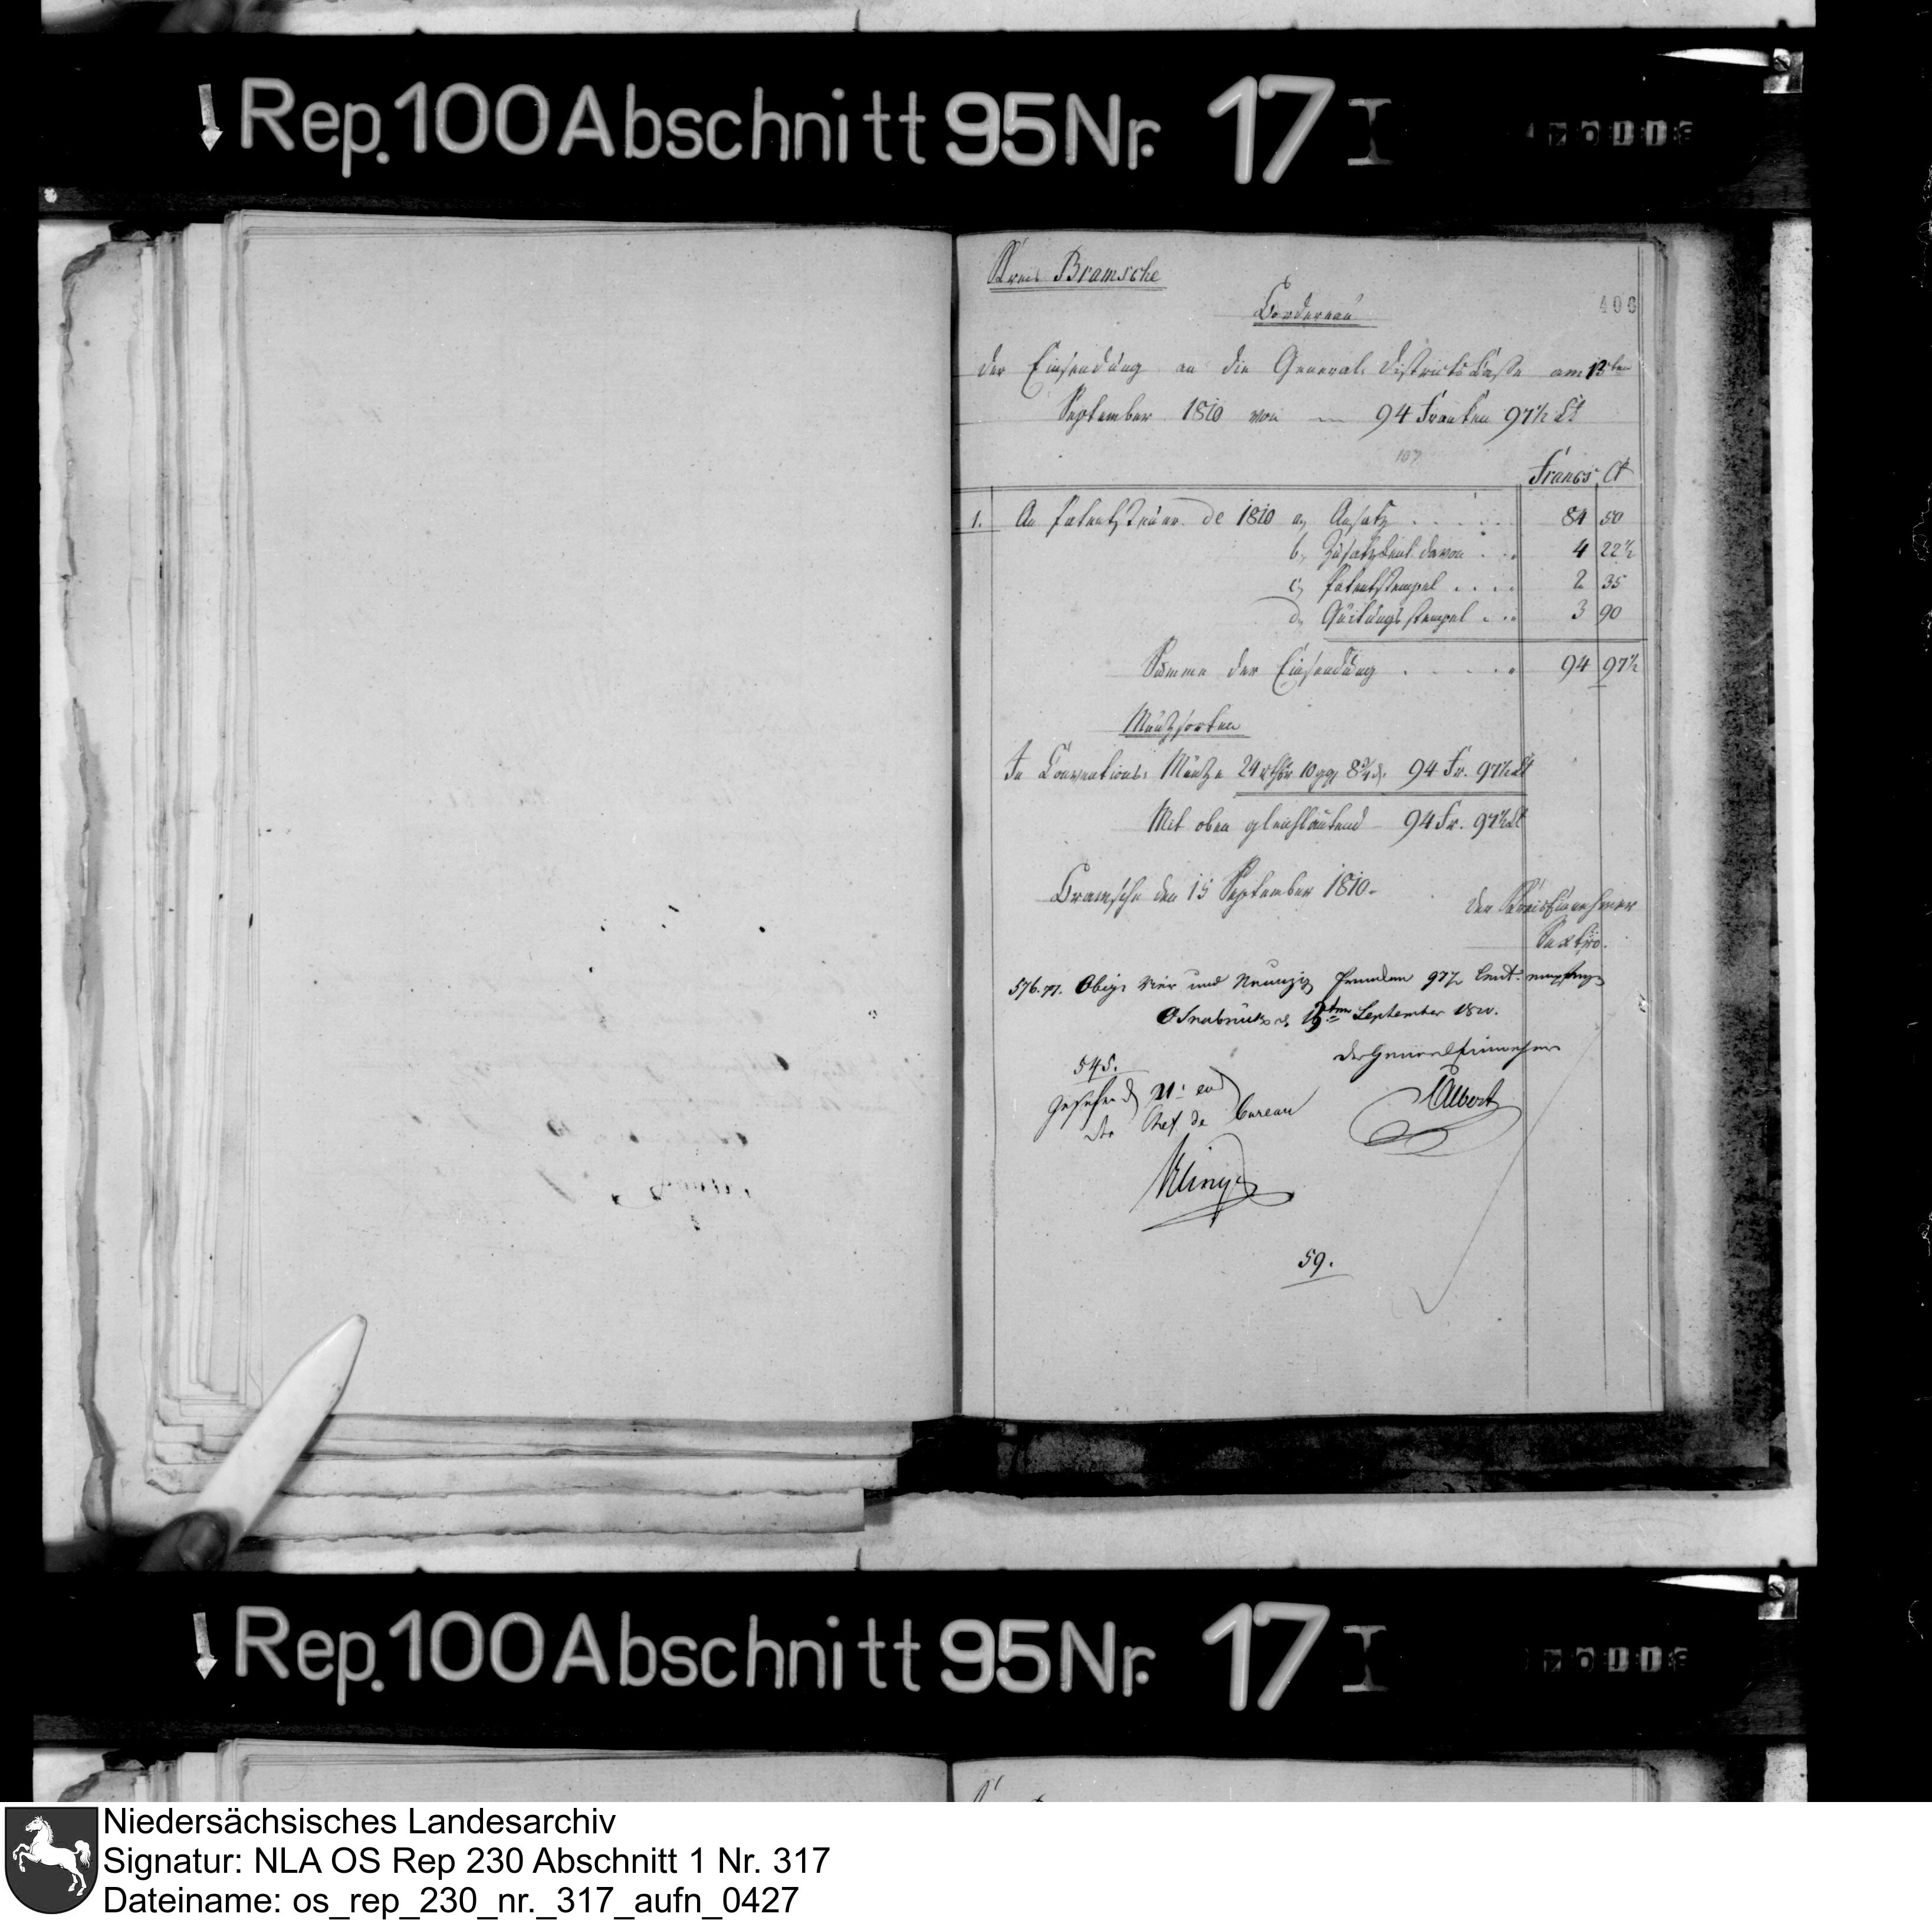 Rep. 100 Abschnitt 95 Nr. 17 I
Kreis Bramsche
400
Bordereau
der Einsendung an die General Districts Casse am 13ten
September 1810 von — 94 Franken 97½ Ct
107
Francs Ct
1. An Patentsteuer de 1810 a, Ansatz . . . . . 84 50
b, Zusatzcent. davon . . . 4 22½
c, Patentstempel . . . . 2 35
d, Quitungsstempel . . . 3 90
Summe der Einsendung . . . . . 94 97½
Müntzsorten
In Conventions Müntze 24 rthlr 10 ggr 8¾ d. 94 Fr. 97½ Ct
Mit oben gleichlautend 94 Fr. 97½ Ct
Bramsche den 15 September 1810.
der Kreis Einnehmer
576. 77. Obige Vier und Neunzig Franken 97½ Cent.
Osnabrück September 1810.
der General Einnehmer
545.
Gesehen
Der Chef de Bureau
Albert
59.
Rep. 100 Abschnitt 95 Nr. 17 I
Niedersächsisches Landesarchiv
Signatur: NLA OS Rep 230 Abschnitt 1 Nr. 317
Dateiname: os_rep_230_nr._317_aufn_0427